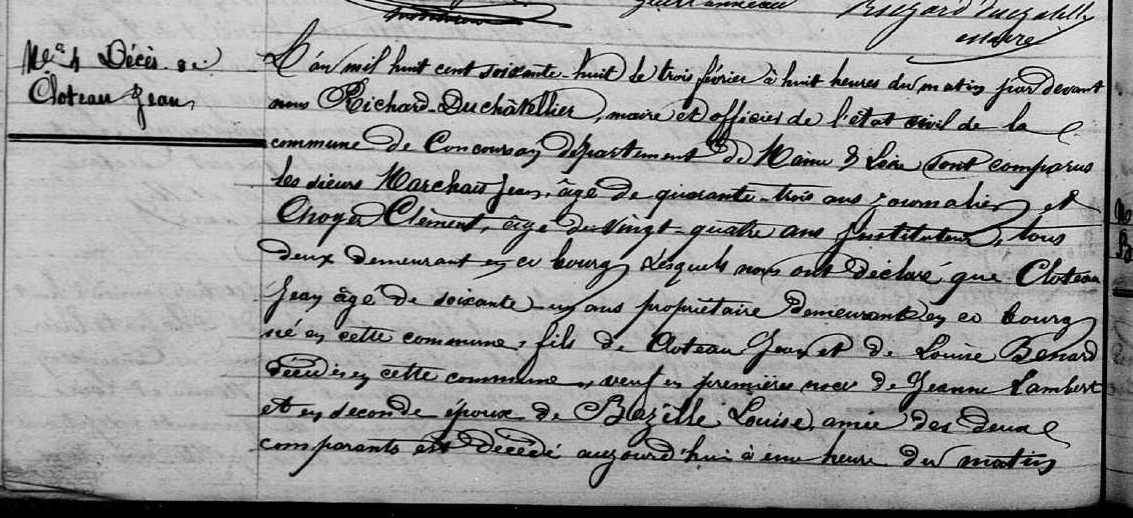 maire
Nº 4 Décès de
Cloteau Jean
L'an mil huit cent soixante-huit le trois février à huit heures du matin par devant
nous Richard-Duchâtellier, maire et officier de l'état civil de la
commune de Concourson département de Maine & Loire sont comparus
les sieurs Marchais Jean, âgé de quarante-trois ans journalier et
Choyer Clément, âgé de vingt-quatre ans Instituteur, tous
deux demeurant en ce bourg, lesquels nous ont déclaré que Cloteau
Jean âgé de soixante-un ans propriétaire demeurant en ce bourg
né en cette commune, fils de Cloteau Jean et de Louise Benard
décédés en cette commune, veuf en premières noces de Jeanne Lambert
et en seconde époux de Bazille Louise, amie des deux
comparants est décédé aujourd'hui à une heure du matin